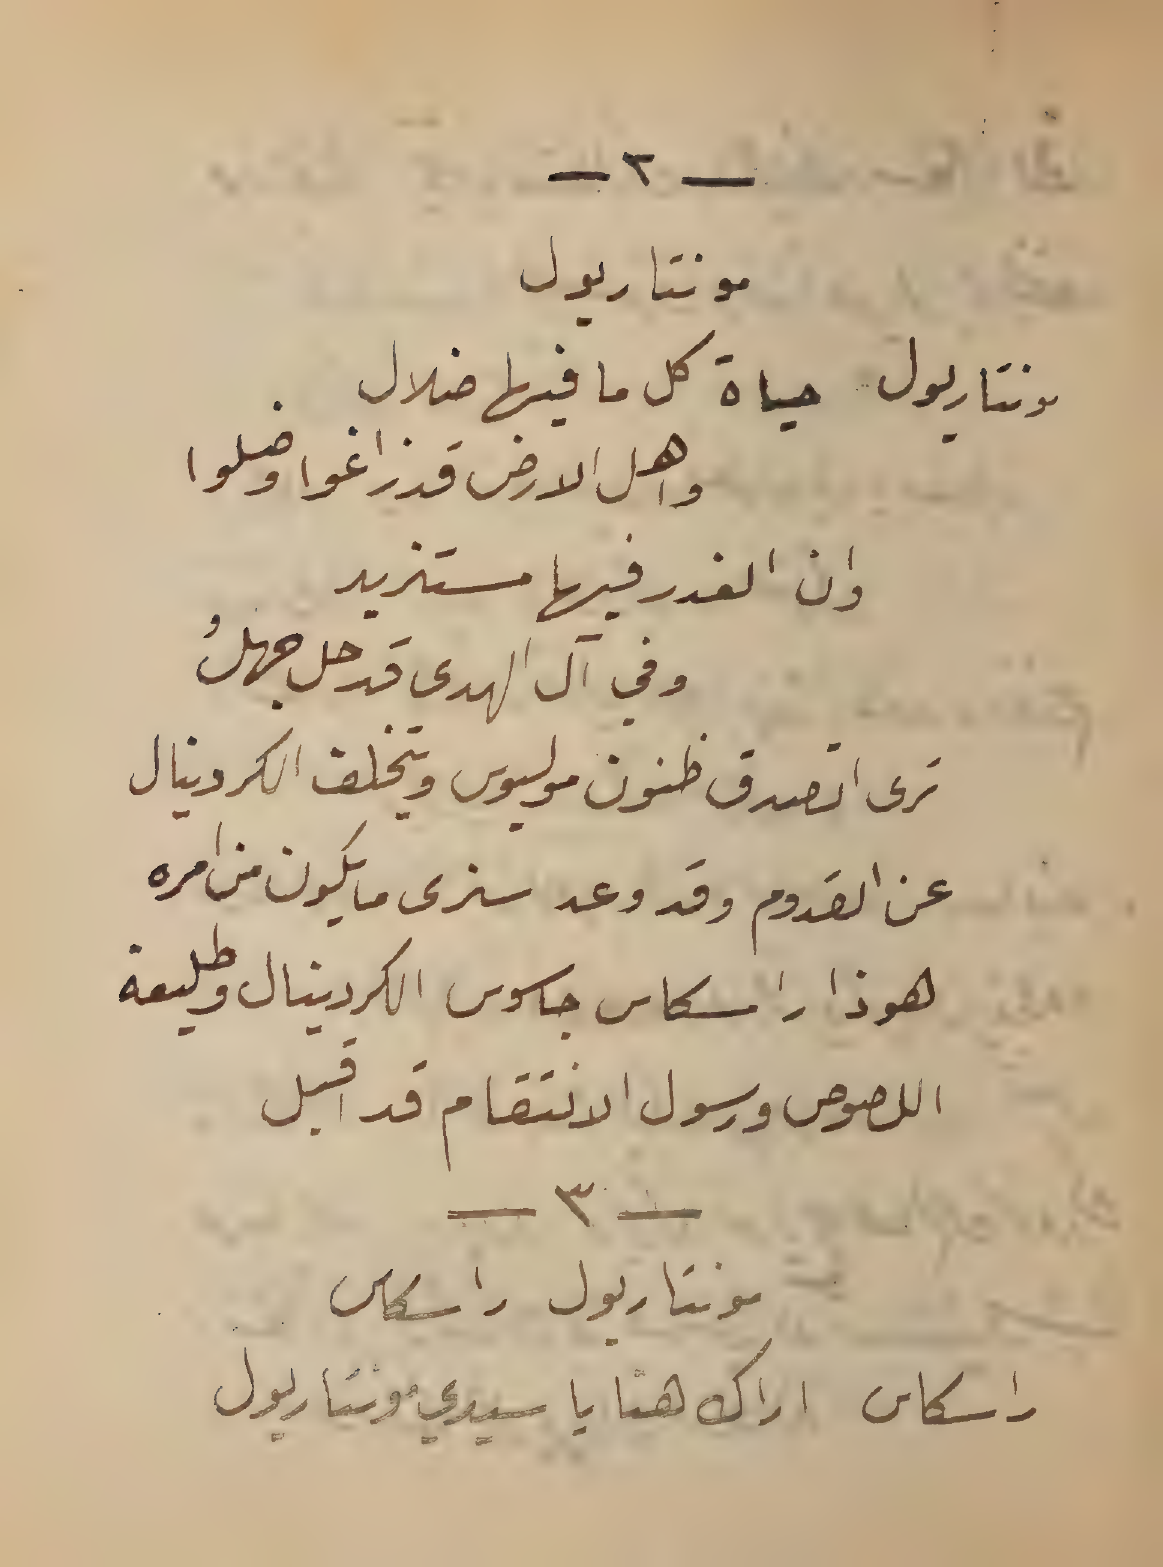 — ٢ —
مونتاريول
مونتاريول حياة كل ما فيها ضلال
واهل الارض قد زاغوا وضلوا
وان الغدر فيها مستزيد
وفي آل الهدى قد حل جهلُ
ترى اتصدق ظنون موليوس ويتخلف الكردينال
عن القدوم وقد وعد سنرى ما يكون من امره
هوذا راسكاس جاسوس الكردينال وطليعة
اللصوص ورسول الانتقام قد اقبل
— ٣ —
مونتاريول راسكاس
راسكاس اراك هنا يا سيدي مونتاريول